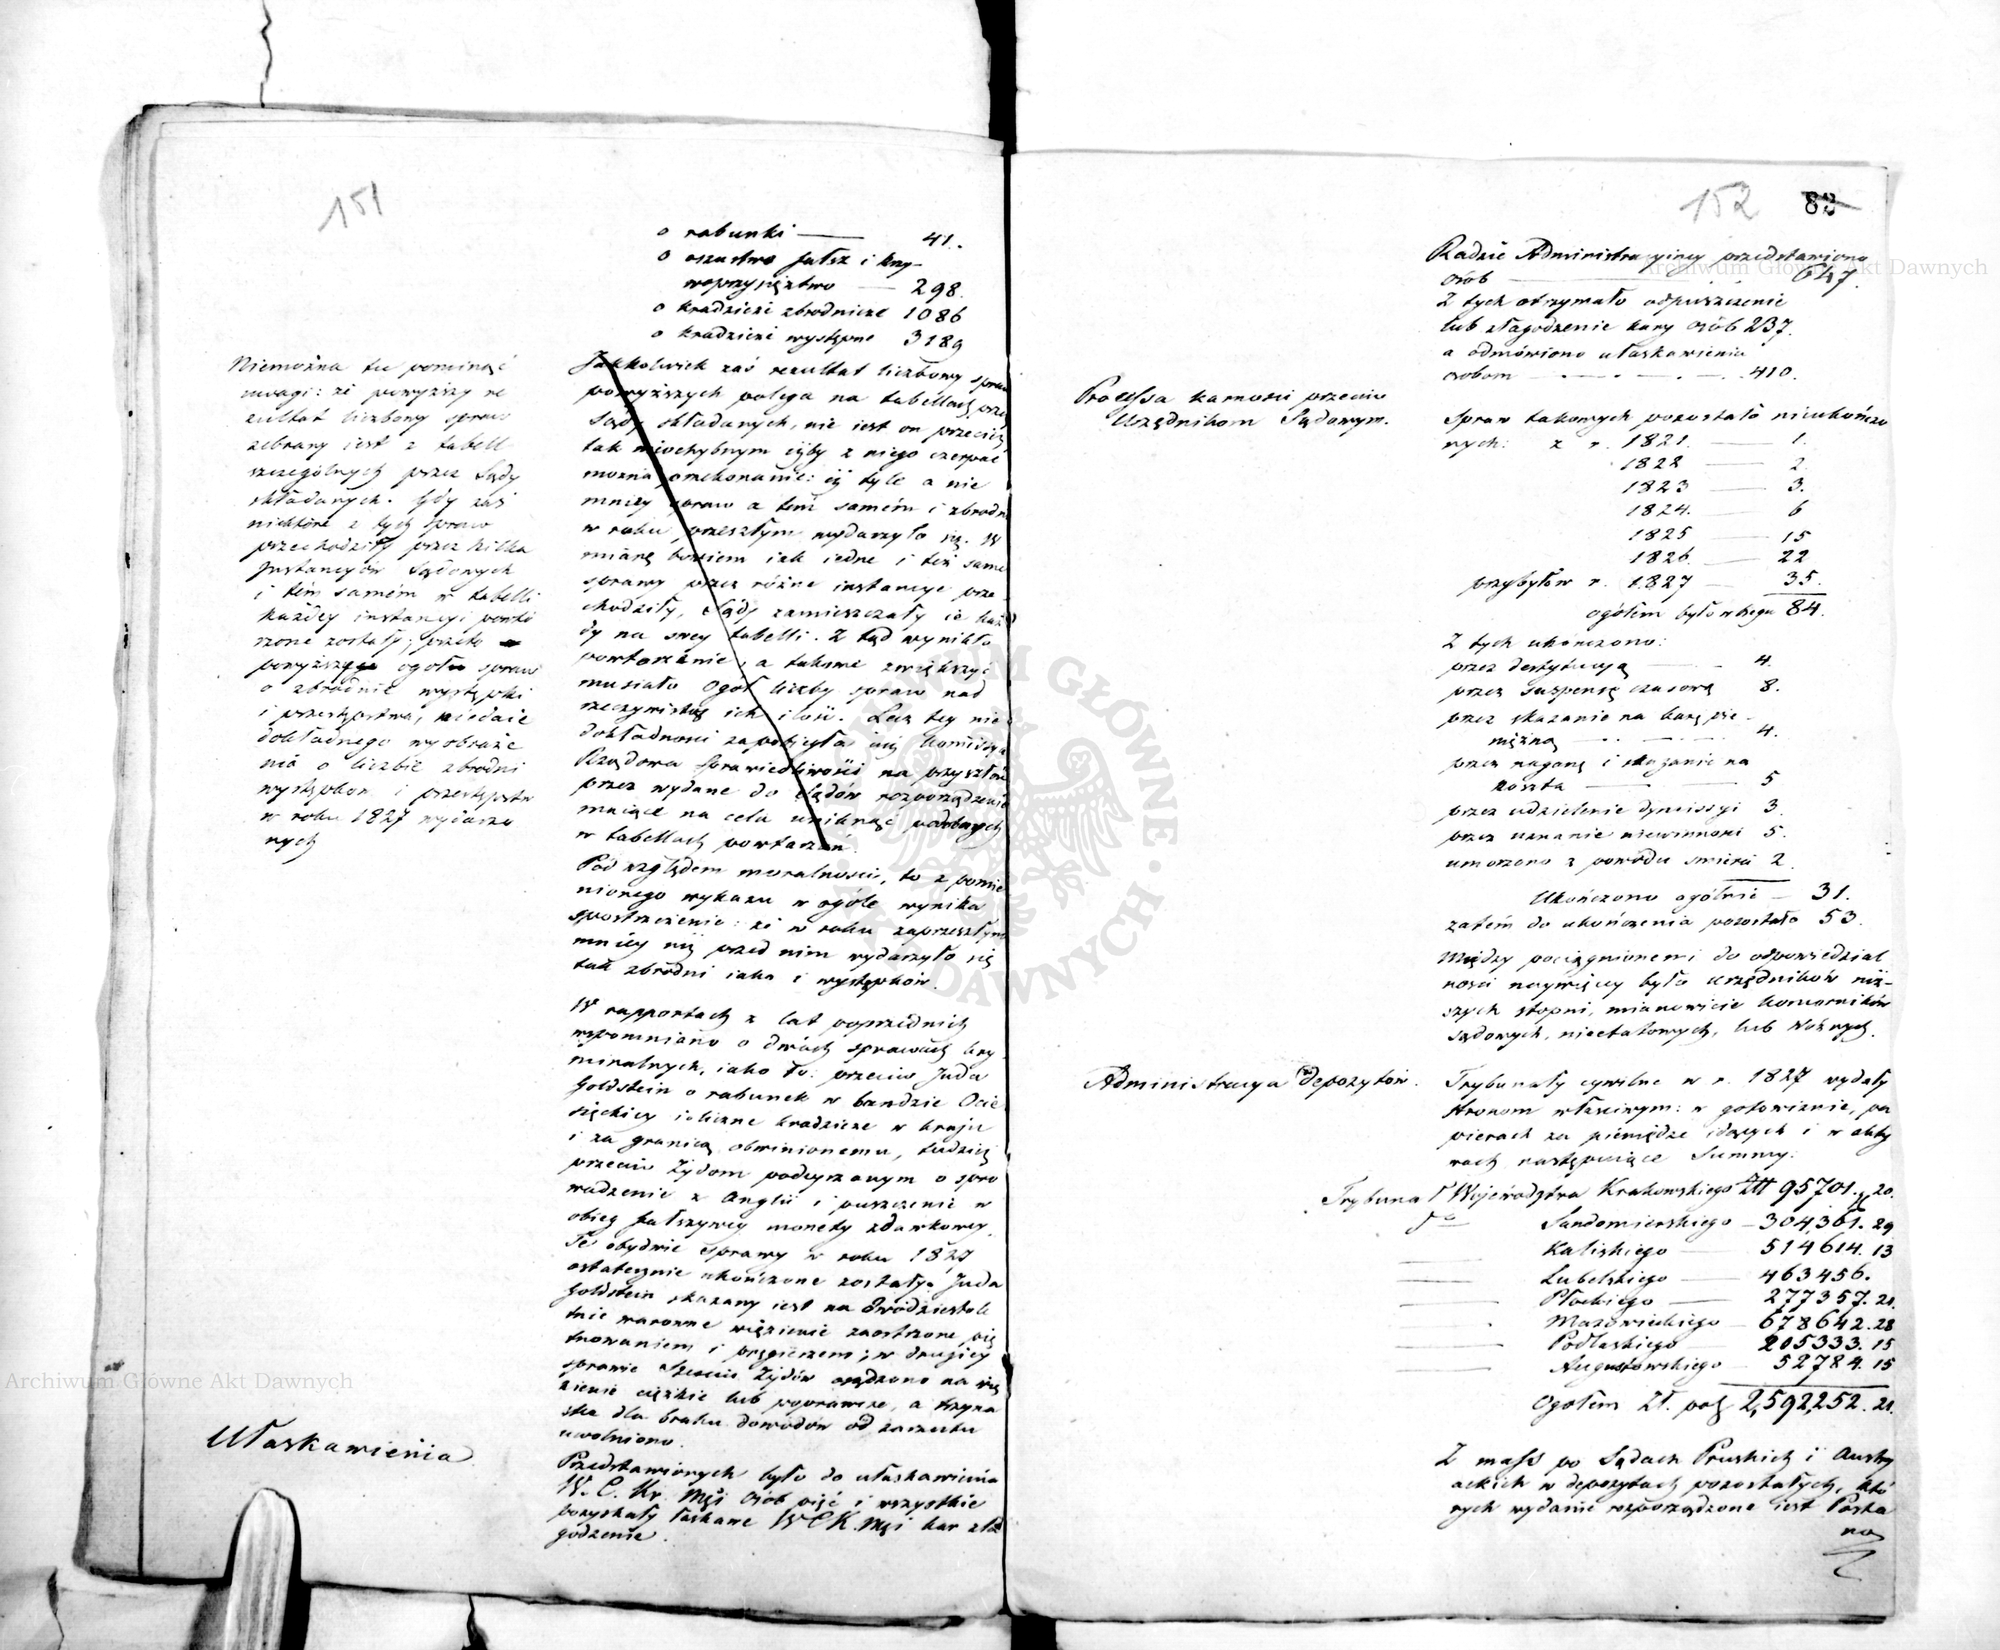 151
o rabunki — 41.
o oszustwo fałsz i krzy-
woprzysięztwo — 298.
o kradzieże zbrodnicze 1086
o kradzieże występne 3189
Niemożna tu pominąć
uwagi: że powyższy re
zultat liczbowy spraw
zebrany iest z tabell
szczególnych przez Sądy
składanych. Gdy zaś
niektóre z tych spraw
przechodziły przez kilka
Instancyów Sądowych
i tém samém w tabelli
każdey instancyi powtó
rzone zostały; przeto
powyższego ogółu spraw
o zbrodnie występki
i przestępstwa, niedaie
dokładnego wyobraże
nia o liczbie zbrodni
występków i przestępstw
w roku 1827 wydarzo
nych
Jakkolwiek zaś rezultat liczbowy spraw
powyższych polega na tabellach przez
Sądy składanych, nie iest on przecież
tak nieochybnym iżby z niego czerpać
można przekonanie: iż tyle a nie
mniey spraw a tém samém i zbrodni
w roku przeszłym wydarzyło się. W
miarę bowiem iak iedne i też same
sprawy przez różne instancye prze
chodziły, Sądy zamieszczały ie każ
dy na swey tabelli. Z tąd wynikło
powtorzenie, a takowe zwiększyć
musiało ogół liczby spraw nad
rzeczywistą ich ilość. Lecz tey nie
dokładności zapobiegła iuż Kommissya
Rządowa Sprawiedliwości na przyszłość
przez wydane do Sądów rozporządzenie
maiące na celu uniknąć podobnych
w tabellach powtarzań.
Pod względem moralności, to z pomie
nionego wykazu w ogóle wynika
spostrzeżenie: że w roku zaprzeszłym
mniey niż przed nim wydarzyło się
tak zbrodni iako i występków.
W rapportach z lat poprzednich
wspomniano o dwóch sprawach kry
minalnych, iako to: przeciw Juda
Goldstein o rabunek w bandzie Ocie
sięckiey i liczne kradzieże w kraju
i za granicą obwinionemu, tudzież
przeciw Żydom podeyrzanym o spro
wadzenie z Anglii i puszczenie w
obieg fałszywey monety zdawkowey.
Te obydwie sprawy w roku 1827
ostatecznie ukończone zostały. Juda
Goldstein skazany iest na dwódziestole
tnie warowne więzienie zaostrzone pię
tnowaniem i pręgierzem; w drugiey
sprawie Sześciu Żydów osądzono na wię
zienie ciężkie lub poprawcze, a trzyna
stu dla braku dowodów od zarzutu
uwolniono.
Ułaskawienia
Przedstawionych było do ułaskawienia
W. C. Kr. Mci osób pięć i wszystkie
pozyskały łaskawe W C K. Mci kar zła
godzenie.
152 82
Radzie Administracyiney przedstawiono
osób — 647.
Z tych otrzymało odpuszczenie
lub złagodzenie kary osób 237.
a odmówiono ułaskawienia
osobom — 410.
Processa karności przeciw
Urzędnikom Sądowym.
Spraw takowych pozostało nieukończo
nych: z r. 1821. — 1.
1822 — 2.
1823 — 3.
1824. — 6
1825 — 15
1826. — 22
przybyło w r. 1827 — 35.
ogółem było w biegu 84.
Z tych ukończono:
przez destytucyą — 4.
przez suspensę czasową 8.
przez skazanie na karę pie-
niężną — 4.
przez naganę i skazanie na
koszta — 5
przez udzielenie dymissyi 3.
przez uznanie niewinności 5.
umorzono z powodu śmierci 2.
Ukończono ogólnie — 31.
zatém do ukończenia pozostało 53.
Między pociągnionemi do odpowiedzial
ności naywięcey było urzędników niż-
szych stopni, mianowicie komorników
sądowych, nieetatowych, lub woźnych.
Administracya depozytów.
Trybunały cywilne w r. 1827 wydały
stronom właściwym: w gotowiźnie, pa
pierach za pieniądze idących i w obli
gach następuiące Summy:
Trybunał Wojewódstwa Krakowskiego Zł 95701. g 20.
do Sandomierskiego — 304,361. 29
— Kaliskiego — 514,614. 13
— Lubelskiego — 463456.
— Płockiego — 277357. 21.
— Mazowieckiego — 678642. 28
— Podlaskiego — 205333. 15
— Augustowskiego — 52784. 15
Ogółem Zł. pol 2,592,252. 21.
Z mass po Sądach Pruskich i Austry
ackich w depozytach pozostałych, któ
rych wydanie rozporządzone iest Posta
no
Archiwum Główne Akt Dawnych
Archiwum Główne Akt Dawnych
ARCHIWUM GŁÓWNE AKT DAWNYCH